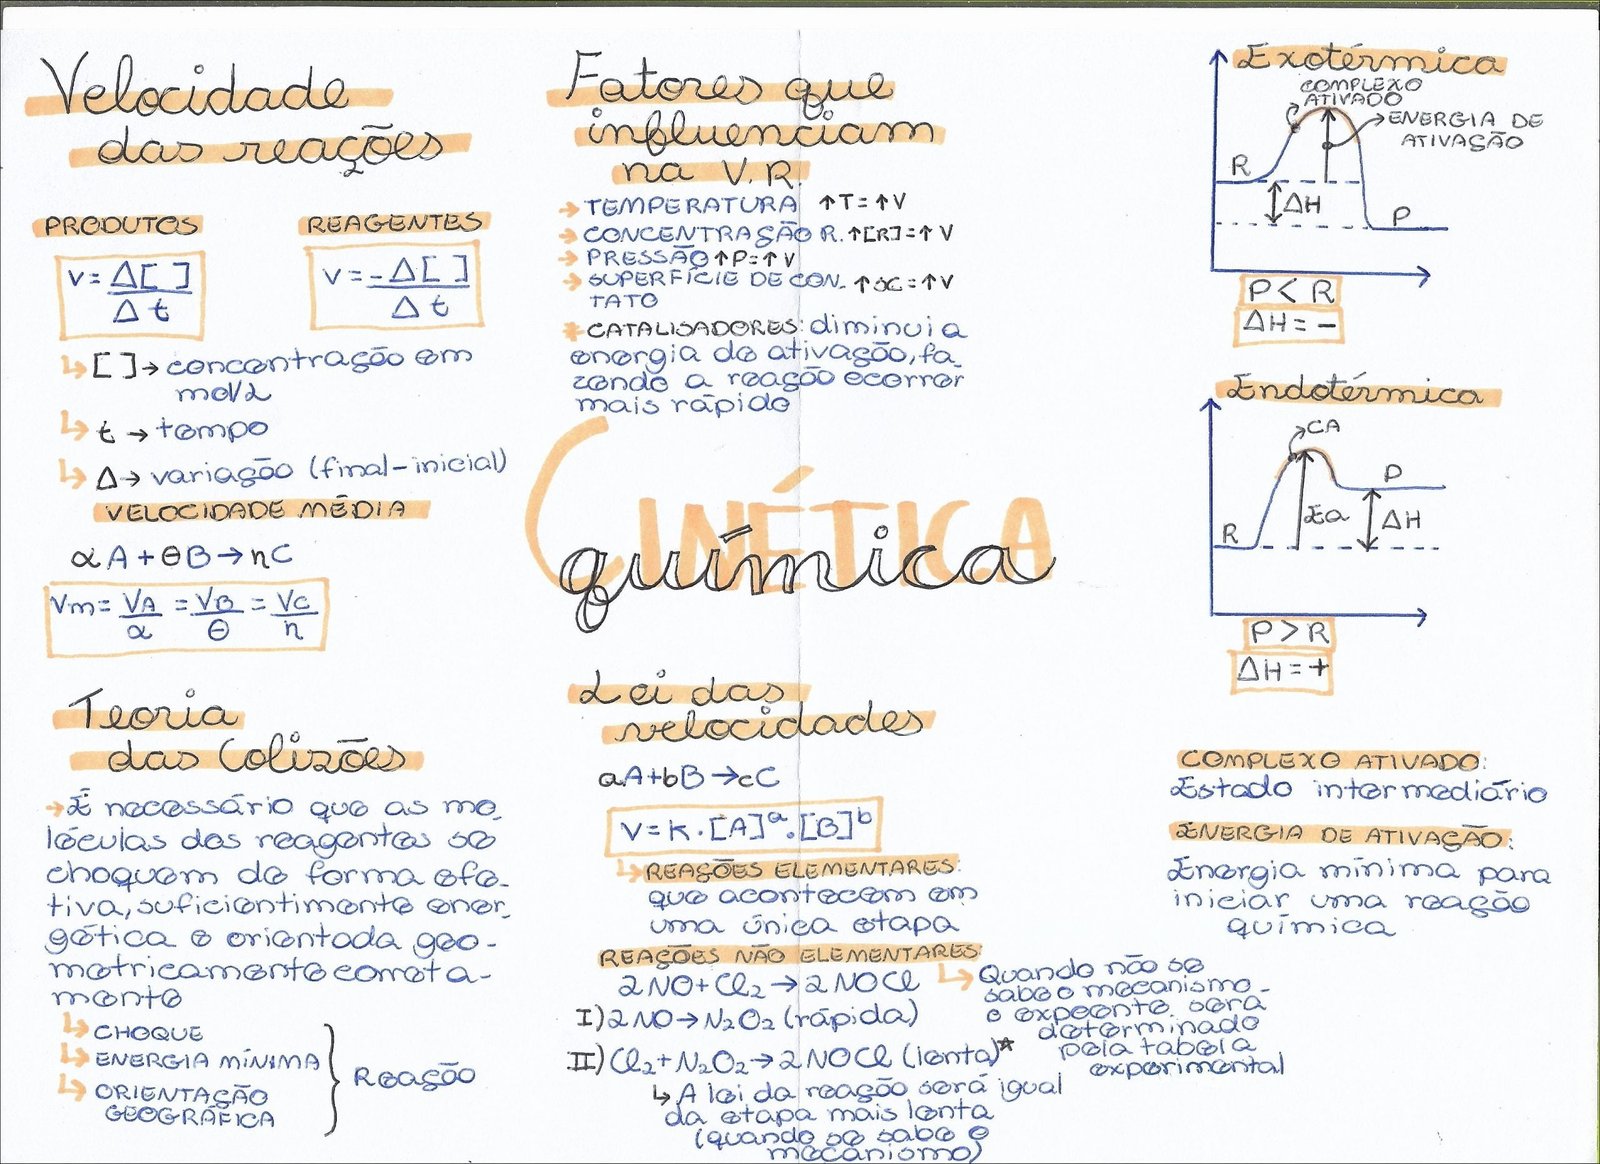 Velocidade
das reações
PRODUTOS
v = Δ[ ]
Δt
REAGENTES
v = -Δ[ ]
Δt
[ ] → concentração em
mol/L
t → tempo
Δ → variação (final-inicial)
VELOCIDADE MÉDIA
αA + θB → ηC
Vm = VA/α = VB/θ = VC/η
Teoria
das Colizões
→ É necessário que as mo-
léculas dos reagentes se
choquem de forma efe-
tiva, suficientimente ener-
gética e orientada geo-
metricamente corret a-
mente
CHOQUE
ENERGIA MÍNIMA
ORIENTAÇÃO
GEOGRÁFICA
Reação
Fatores que
influenciam
na V.R.
→ TEMPERATURA ↑T=↑V
→ CONCENTRAÇÃO R. ↑[R]=↑V
→ PRESSÃO ↑P=↑V
→ SUPERFÍCIE DE CON- ↑SC=↑V
TATO
* CATALISADORES: diminui a
energia de ativação, fa-
zendo a reação ocorrer
mais rápido
CINÉTICA
química
Lei das
velocidades
aA+bB→cC
V=K.[A]ᵃ.[B]ᵇ
REAÇÕES ELEMENTARES:
que acontecem em
uma única etapa
REAÇÕES NÃO ELEMENTARES:
2NO+Cl₂→2NOCl
I) 2NO→N₂O₂ (rápida)
II) Cl₂+N₂O₂→2NOCl (lenta)*
A lei da reação será igual
da etapa mais lenta
(quando se sabe o
mecanismo)
Quando não se
sabe o mecanismo-
o expoente será
determinado
pela tabela
experimental
Exotérmica
COMPLEXO
ATIVADO
ENERGIA DE
ATIVAÇÃO
R
ΔH
P
P < R
ΔH = -
Endotérmica
CA
P
R
Ea
ΔH
P > R
ΔH = +
COMPLEXO ATIVADO:
Estado intermediário
ENERGIA DE ATIVAÇÃO:
Energia mínima para
iniciar uma reação
química